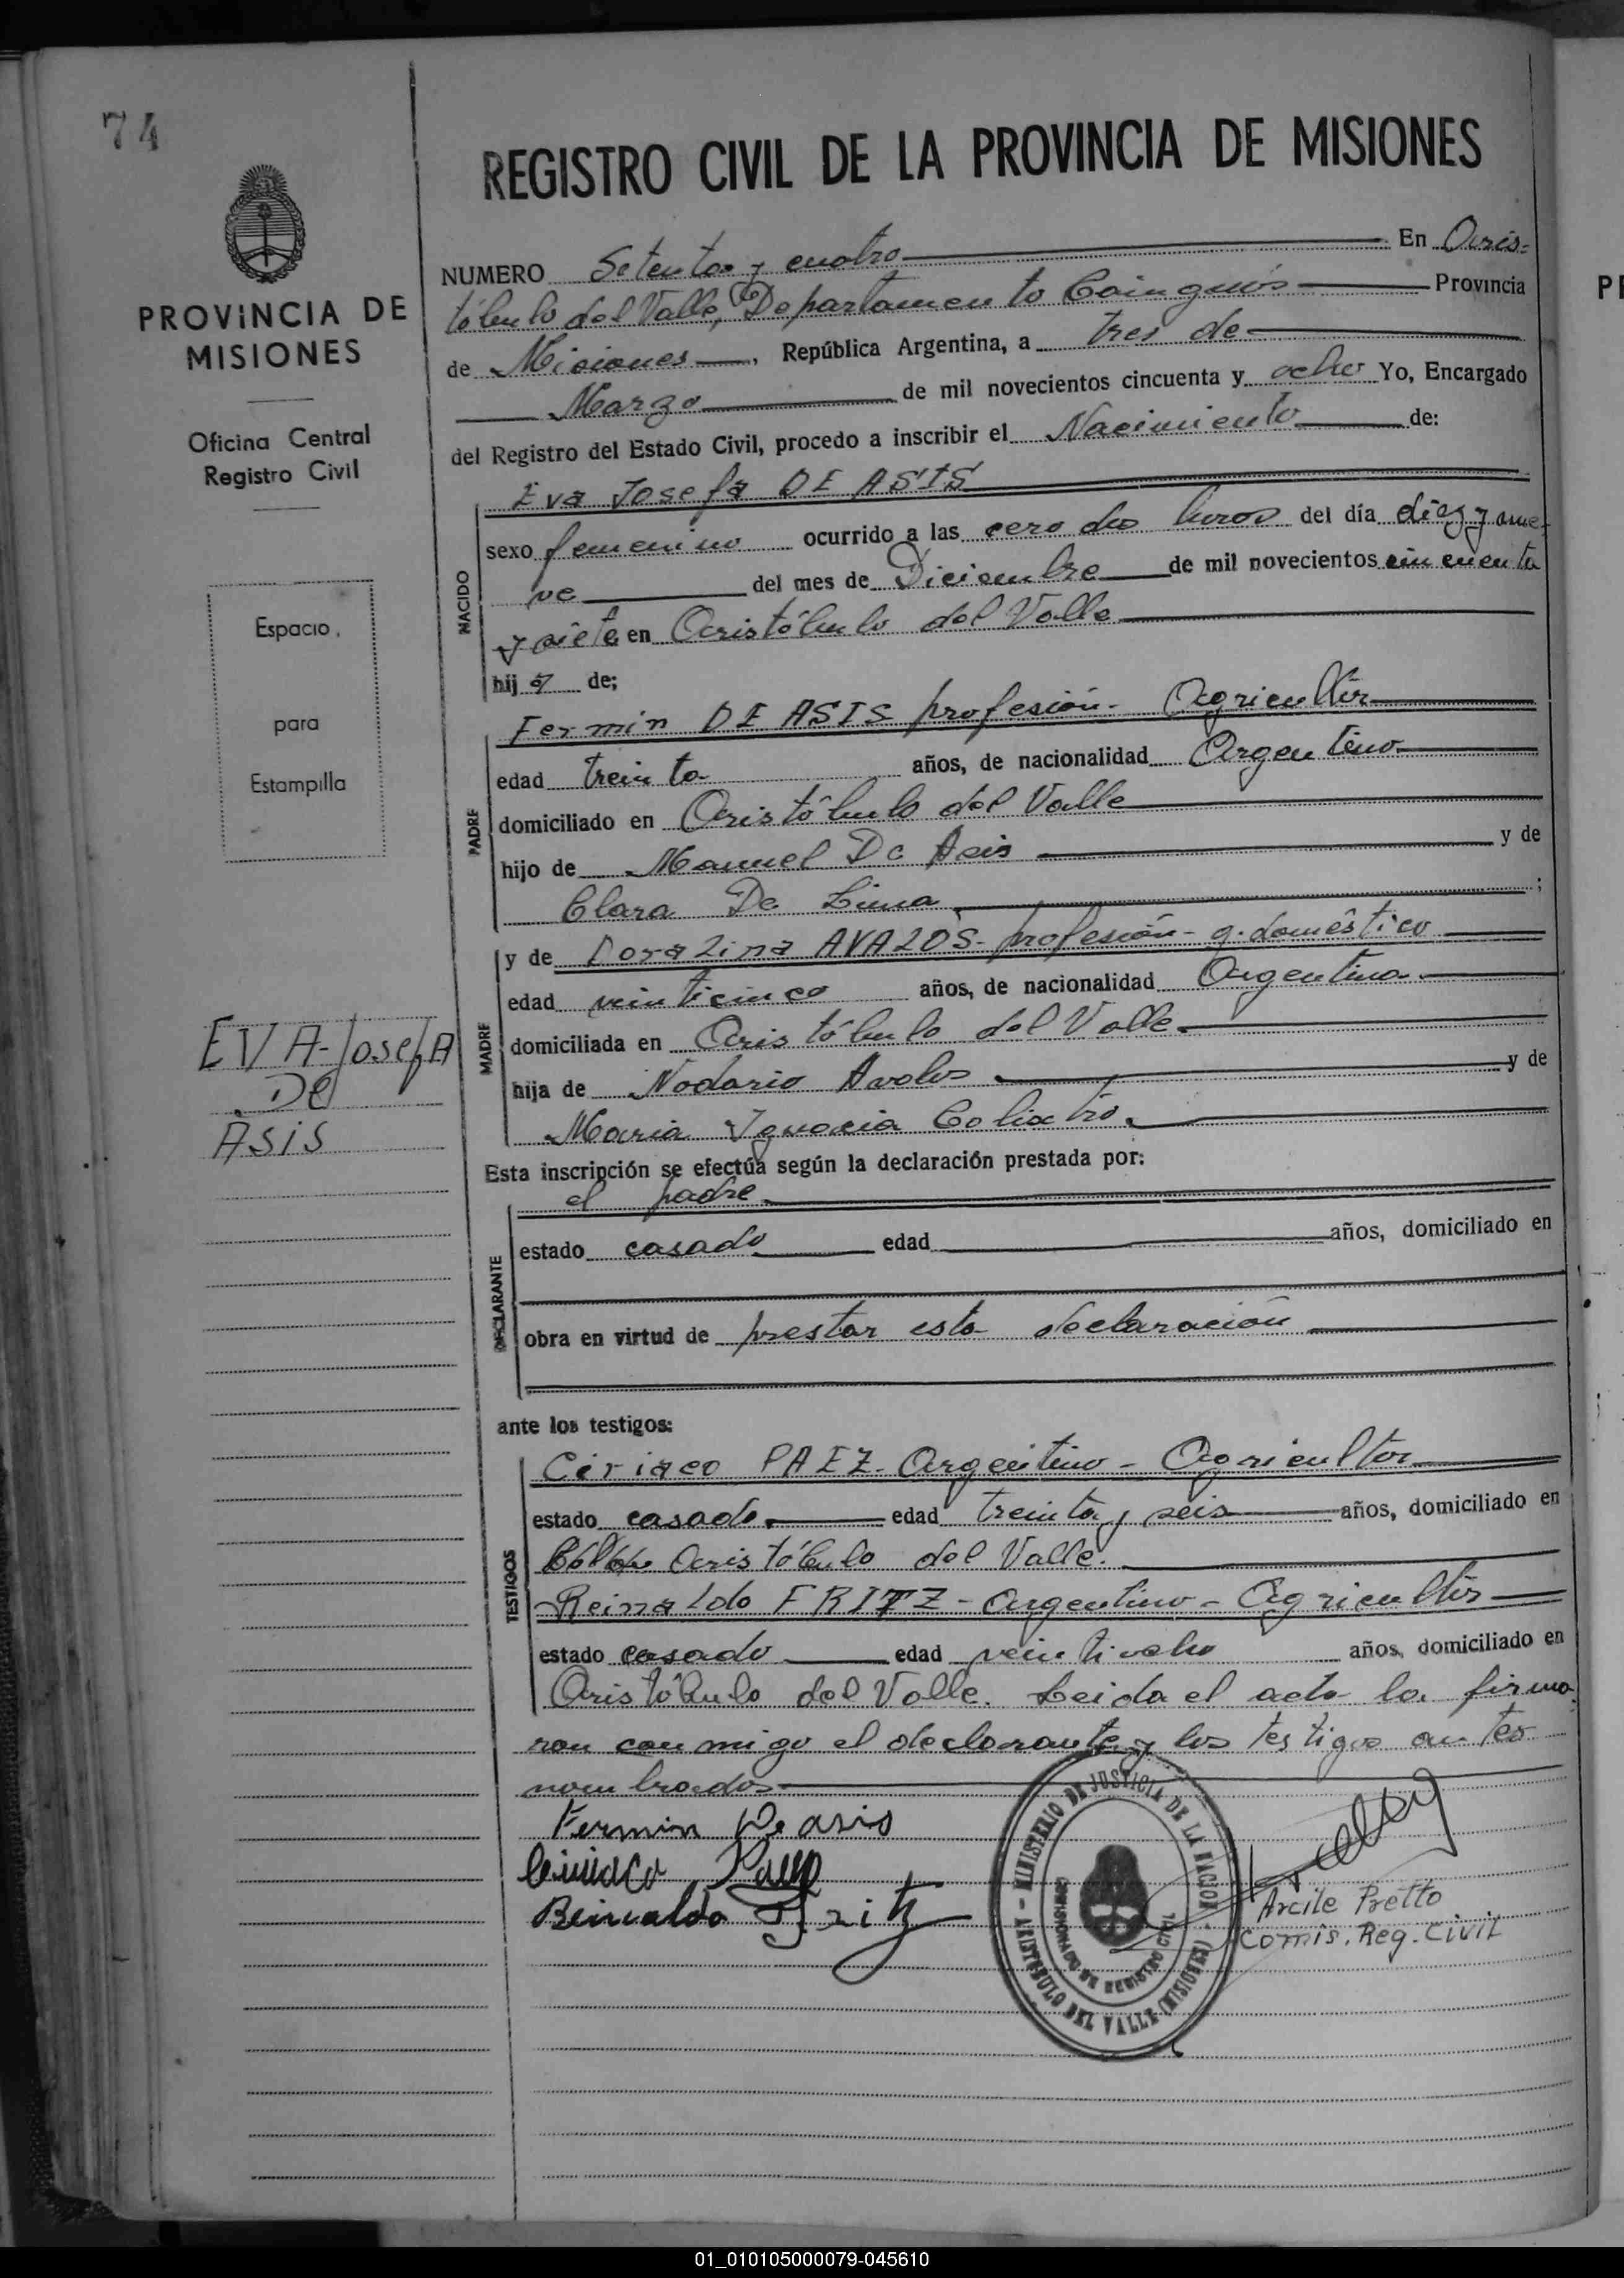 74
PROVINCIA DE
MISIONES
Oficina Central
Registro Civil
Espacio
para
Estampilla
EVA-JosefA
De
Asis
REGISTRO CIVIL DE LA PROVINCIA DE MISIONES
NUMERO Setenta y cuatro En Aris-
tóbulo del Valle, Departamento Cainguás Provincia
de Misiones, República Argentina, a tres de
Marzo de mil novecientos cincuenta y ocho Yo, Encargado
del Registro del Estado Civil, procedo a inscribir el Nacimiento de:
NACIDO
Eva Josefa DE ASIS
sexo femenino ocurrido a las cero dos horas del día diez y nue-
ve del mes de Diciembre de mil novecientos cincuenta
y siete en Aristóbulo del Valle
hija de;
PADRE
Fermin DE ASIS profesión- Agricultor
edad treinta años, de nacionalidad Argentino
domiciliado en Aristóbulo del Valle
hijo de Manuel De Asis y de
Clara De Lima ;
MADRE
y de Doralina AVALOS- profesión- q. doméstico
edad veinticinco años, de nacionalidad Argentina
domiciliada en Aristóbulo del Valle
hija de Nodario Avalos y de
Maria Ignacia
Esta inscripción se efectúa según la declaración prestada por:
DECLARANTE
el padre
estado casado edad años, domiciliado en
obra en virtud de prestar esta declaración
ante los testigos:
TESTIGOS
Ciriaco PAEZ- Argentino - Agricultor
estado casado edad treinta y seis años, domiciliado en
Aristóbulo del Valle.
Reinaldo FRITZ - Argentino - Agricultor
estado casado edad veintiocho años, domiciliado en
Aristóbulo del Valle. Leida el acta la firma
ron conmigo el declarante y los testigos antes
nombrados
Fermin De asis
Ciriaco Paez
Reinaldo Fritz
MINISTERIO DE JUSTICIA DE LA NACION - ARISTOBULO DEL VALLE (MISIONES)
COMISIONADO DE REGISTRO CIVIL
Arcile Pretto
Comis. Reg. Civil
01_010105000079-045610